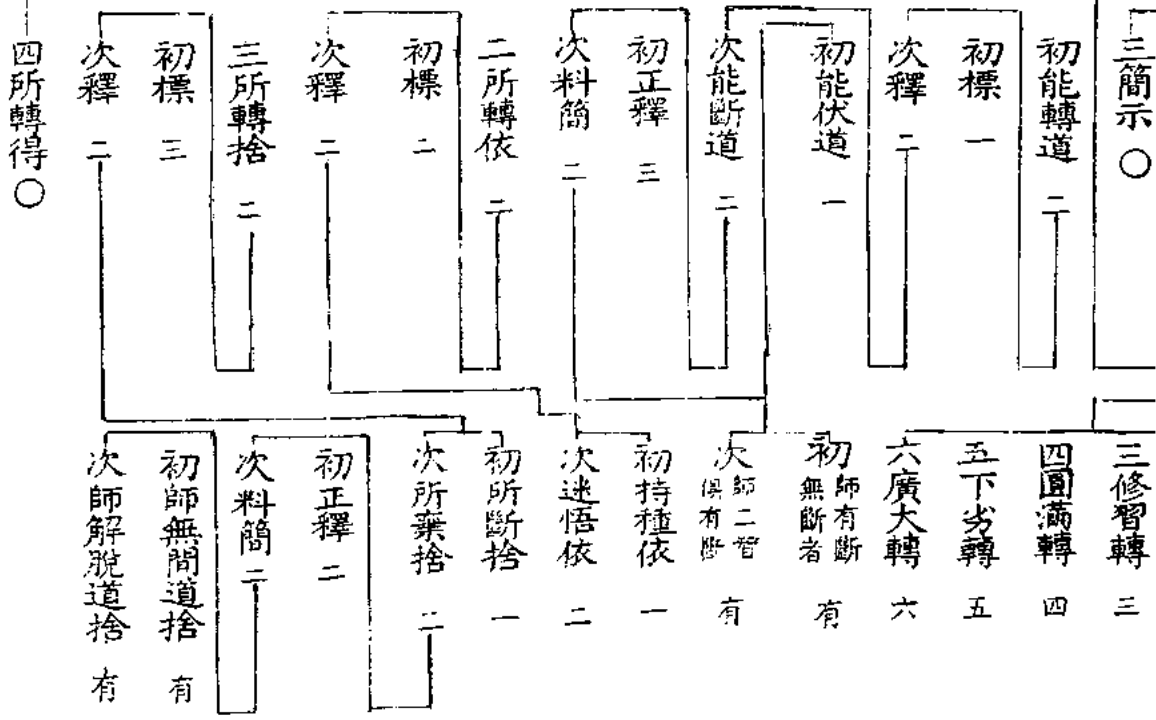 三簡示 〇
初能轉道 二
初標 一
次釋 二
初能伏道 一
次能斷道 二
初正釋 三
次料簡 二
二所轉依 二
初標 二
次釋 二
三所轉捨 二
初標 三
次釋 二
四所轉得 〇
三修習轉 三
四圓滿轉 四
五下劣轉 五
六廣大轉 六
初師有斷無斷者 有
次師二習俱有斷 有
初持種依 一
次迷悟依 二
初所斷捨 一
次所棄捨 二
初正釋 二
次料簡 二
初師無間道捨 有
次師解脫道捨 有